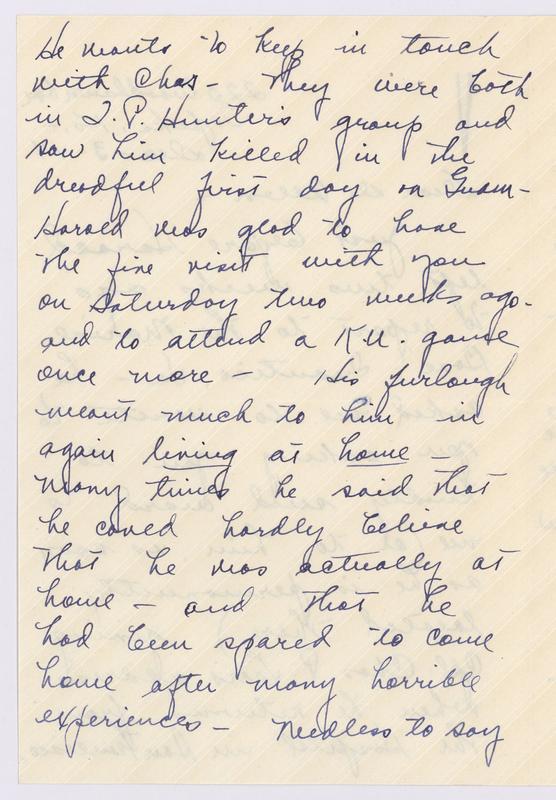 He wants to keep in touch
with Chas - They were both
in J. P. Hunter's group and
saw him killed in the
dreadful first day on Guam -
Harold was glad to have
the fine visit with you
on Saturday two weeks ago -
and to attend a K.U. game
once more - His furlough
meant much to him in
again living at home -
Many times he said that
he could hardly believe
that he was actually at
home - and that he
had been spared to come
home after many horrible
experiences - Needless to say